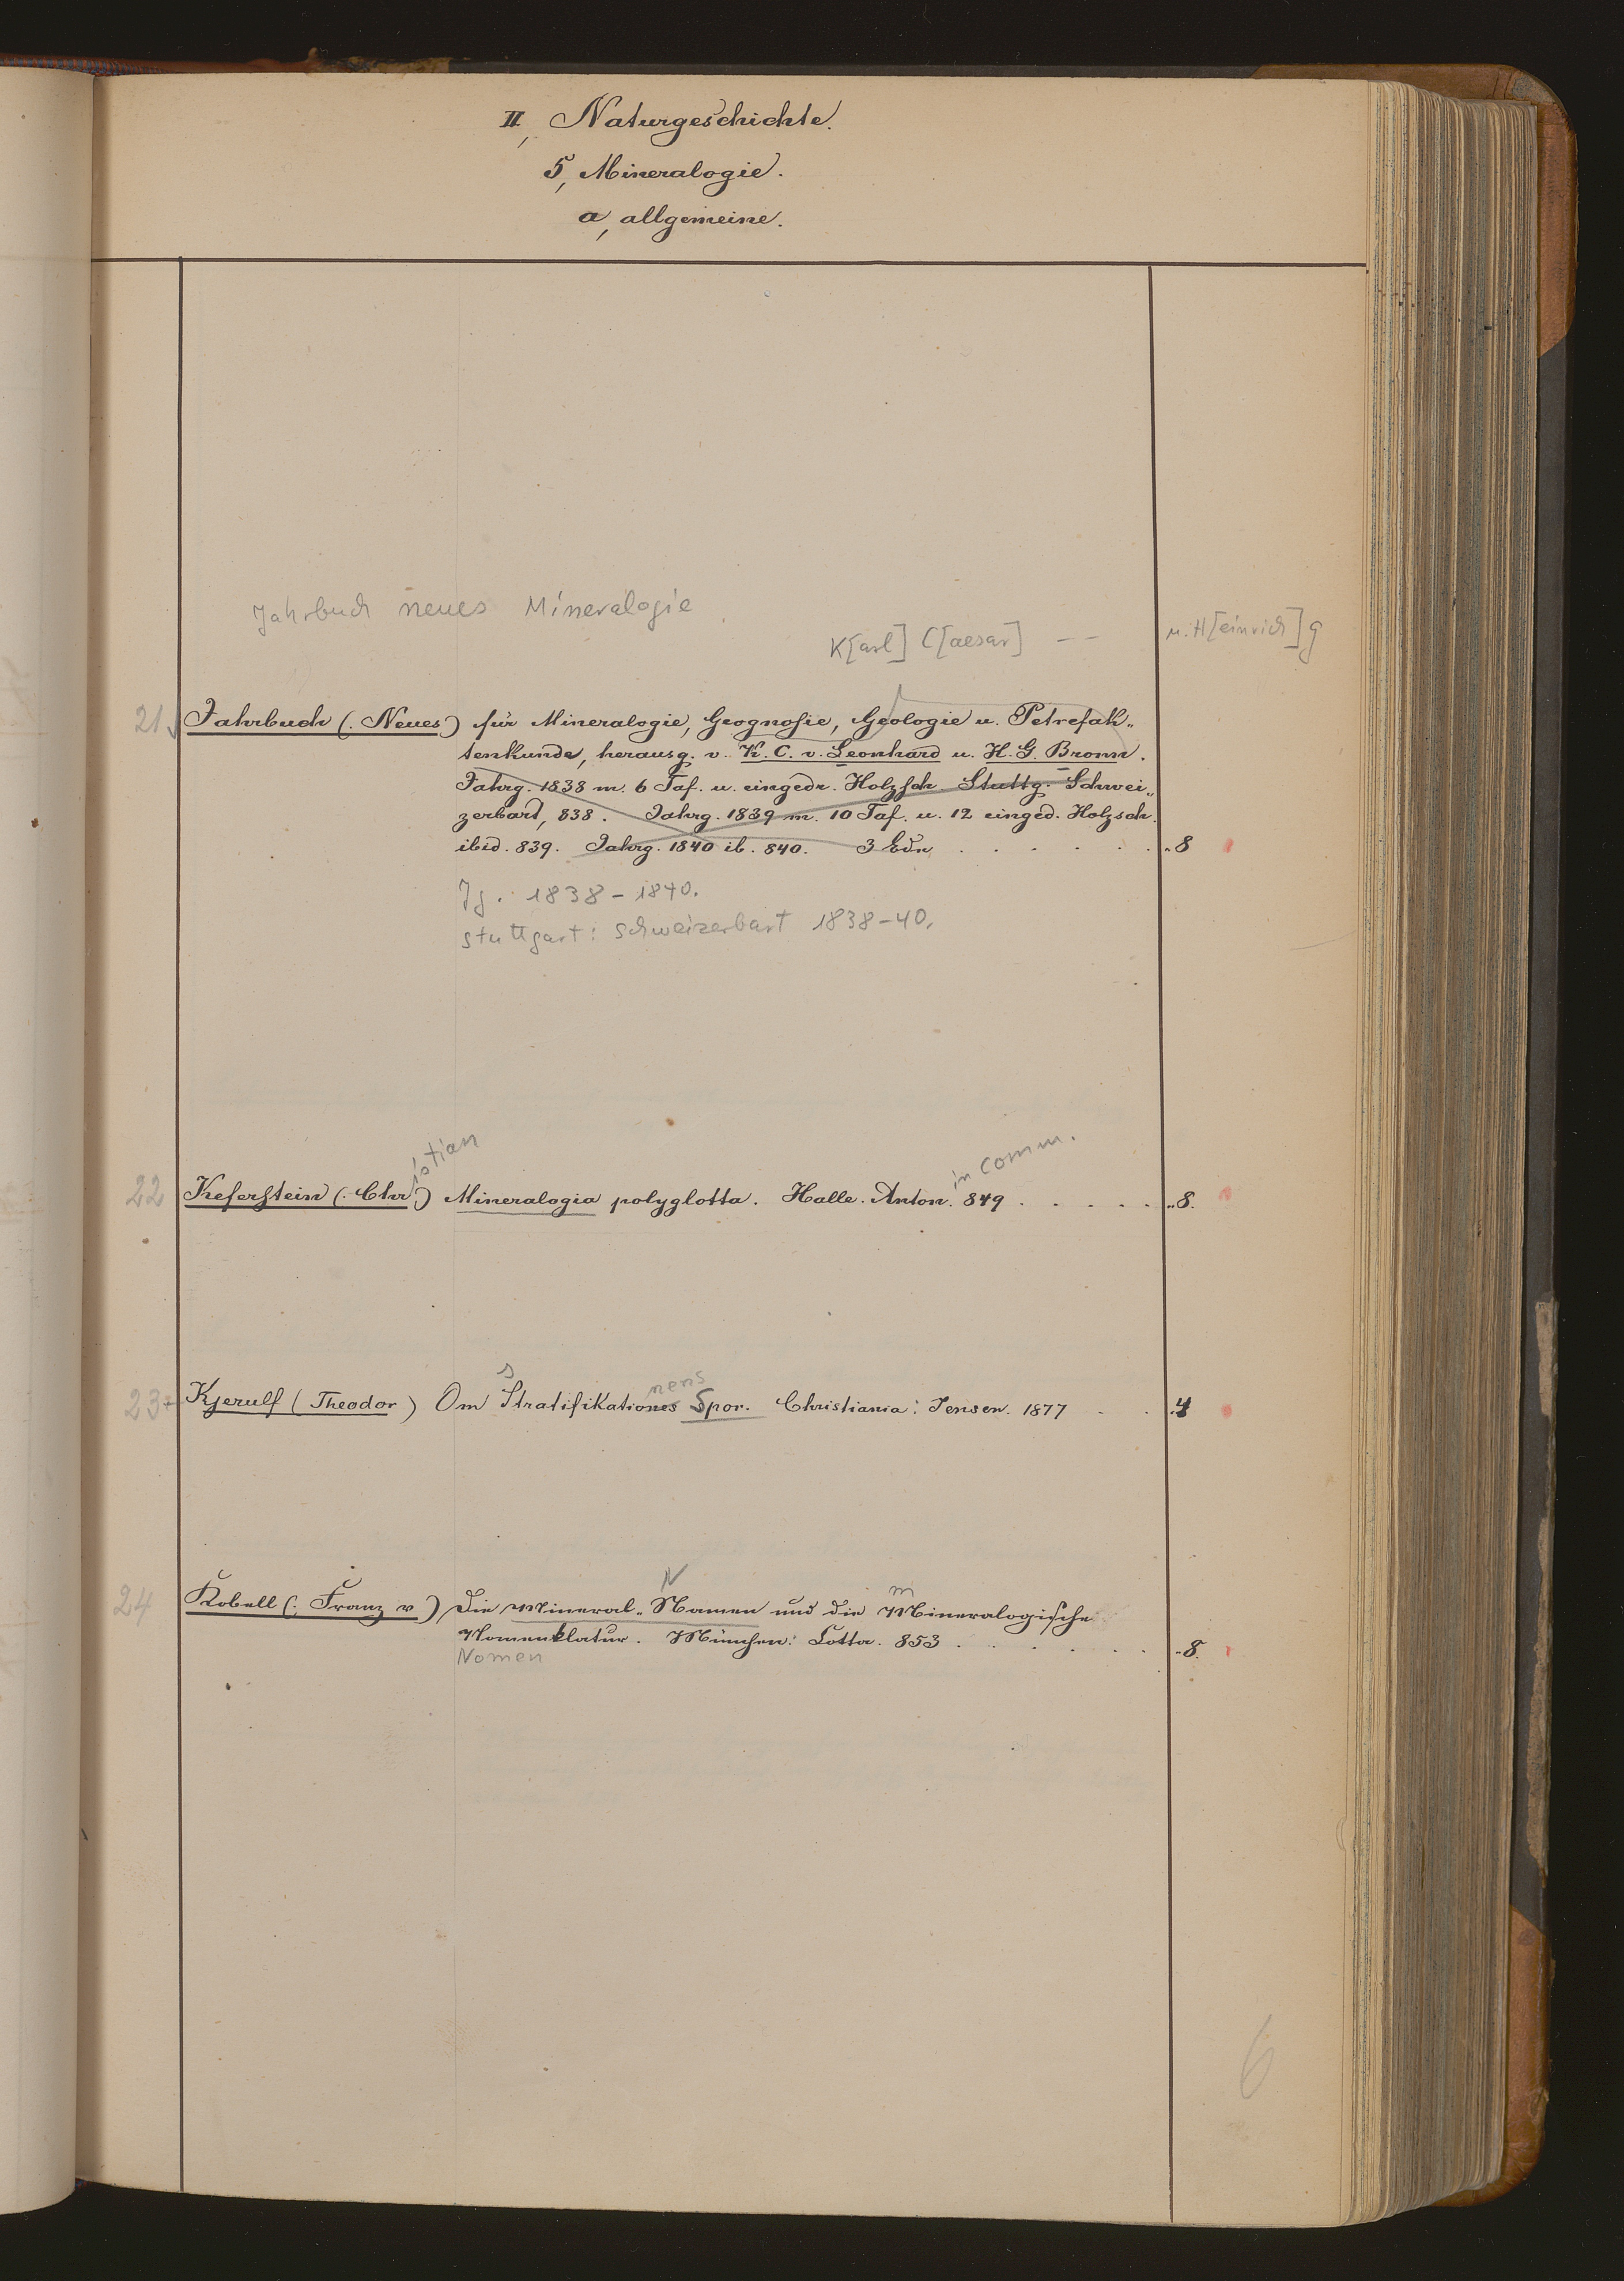 II, Naturgeschichte.
5, Mineralogie.
a, allgemeine.
Jahrbuch neues Mineralogie
K[arl] C[aesar] — —
u. H[einrich] G
21 Jahrbuch (: Neues) für Mineralogie, Geognosie, Geologie u. Petrefak„
tenkunde, herausg. v. K. C. v. Leonhard u. H. G. Bronn.
Jahrg. 1838 m. 6 Taf. u. eingedr. Holzsch. Stuttg. Schwei„
zerbard, 838. Jahrg. 1839 m. 10 Taf. u. 12 einged. Holzsch.
ibid. 839. Jahrg. 1840 ib. 840. 3 Bde . . . . . . „8
Jg. 1838-1840.
Stuttgart: Schweizerbart 1838-40.
istian
in Comm.
22 Keferstein (: Chr:) Mineralogia polyglotta. Halle. Anton. 849 . . . . . „8.
s
nens
23 Kjerulf (Theodor) Om Stratifikationes Spor. Christiania: Jensen. 1877 . . .4
N
m
24 Kobell (: Franz v) Die Mineral„Namen und die Mineralogische
Nomenklatur. München: Cotta. 853 . . . . . . -8.
Nomen
6